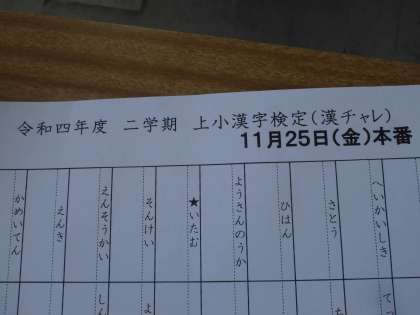 令和四年度 二学期 上小漢字検定(漢チャレ)
11月25日(金)本番
へいかいしき
さとう
ひはん
ようさんのうか
★いたむ
そんけい
えんそうかい
えんき
かめいてん